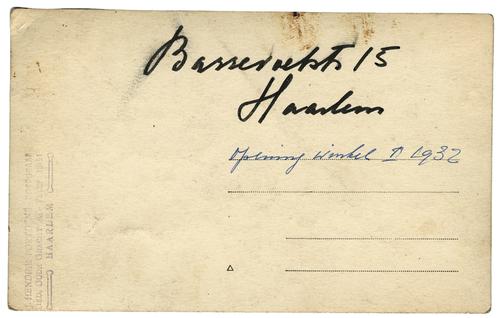 Barrevoetstr 15
Haarlem
opening winkel ± 1932
HAARLEM